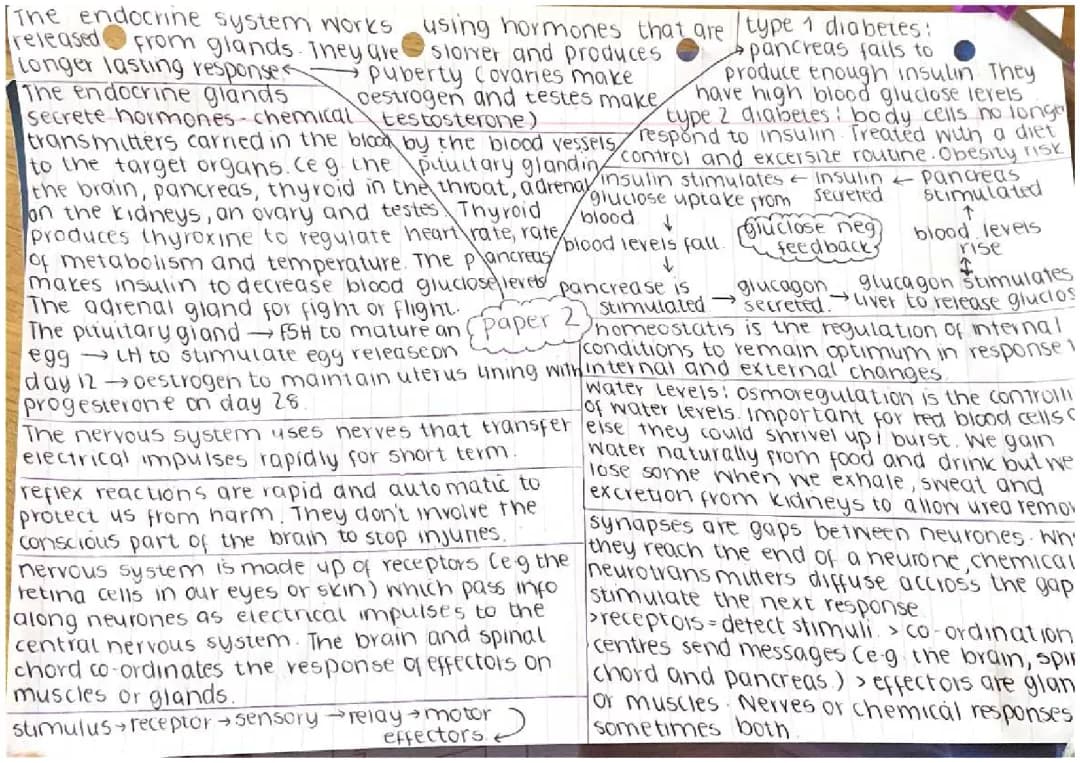 The endocrine system works using hormones that are
released from glands. They are slower and produces
longer lasting response
→ puberty (ovaries make
oestrogen and testes make
testosterone)
The endocrine glands
secrete hormones - chemical
transmitters carried in the blood by the blood vessels
to the target organs. (e.g. the pituitary gland in
the brain, pancreas, thyroid in the throat, adrenal
on the kidneys, an ovary and testes. Thyroid
produces thyroxine to regulate heart rate, rate
of metabolism and temperature. The pancreas
makes insulin to decrease blood glucose levels
The adrenal gland for fight or flight.
The pituitary gland → FSH to mature an
egg → LH to stimulate egg release on
day 12 → oestrogen to maintain uterus lining with
progesterone on day 28.
The nervous system uses nerves that transfer
electrical impulses rapidly for short term.
reflex reactions are rapid and automatic to
protect us from harm. They don't involve the
conscious part of the brain to stop injuries.
nervous system is made up of receptors (e.g the
retina cells in our eyes or skin) which pass info
along neurones as electrical impulses to the
central nervous system. The brain and spinal
chord co-ordinates the response of effectors on
muscles or glands.
stimulus → receptor → sensory → relay → motor
effectors.
paper 2
type 1 diabetes:
pancreas fails to
produce enough insulin. They
have high blood glucose levels
type 2 diabetes: body cells no longe
respond to insulin. Treated with a diet
control and excersize routine. Obesity risk
insulin stimulates ← insulin ← pancreas
glucose uptake from secreted stimulated
blood ↓ ↑
glucose neg feedback
blood levels fall. blood levels
↓ rise
pancrease is → glucagon → glucagon stimulates
stimulated secreted. liver to release glucos
homeostatis is the regulation of internal
conditions to remain optimum in response
internal and external changes.
Water levels: Osmoregulation is the controlli
of water levels. Important for red blood cells o
else they could shrivel up / burst. We gain
water naturally from food and drink but we
lose some when we exhale, sweat and
excretion from kidneys to allow urea remov
synapses are gaps between neurones. Wh
they reach the end of a neurone, chemical
neurotransmitters diffuse accross the gap
stimulate the next response.
>receptors = detect stimuli. > co-ordination
centres send messages (e.g. the brain, spin
chord and pancreas.) > effectors are glan
or muscles. Nerves or chemical responses
sometimes both.